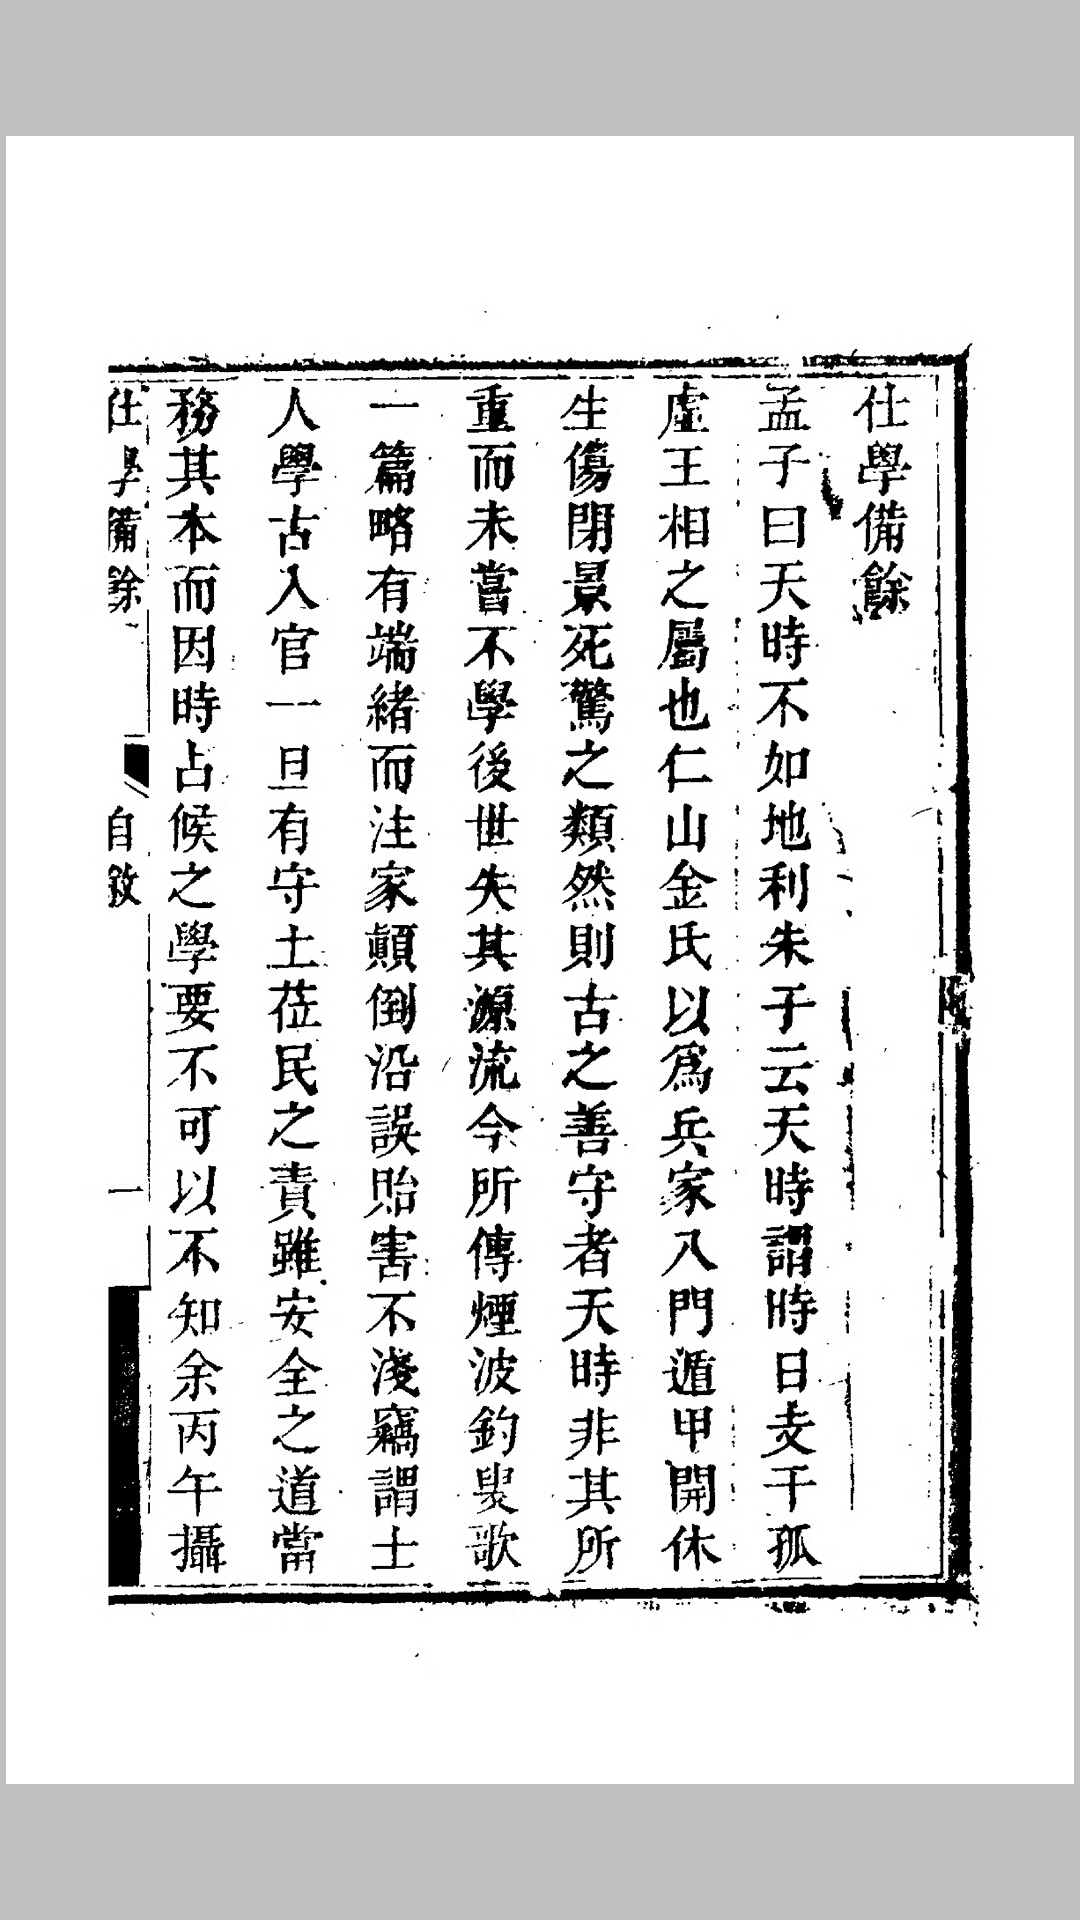 仕學備餘
孟子曰天時不如地利朱子云天時謂時日支干孤
虛王相之屬也仁山金氏以爲兵家八門遁甲開休
生傷閉景死驚之類然則古之善守者天時非其所
重而未嘗不學後世失其源流今所傳煙波釣叟歌
一篇略有端緒而注家顛倒沿誤貽害不淺竊謂士
人學古入官一旦有守土莅民之責雖安全之道當
務其本而因時占候之學要不可以不知余丙午攝
仕學備餘
自敘
一